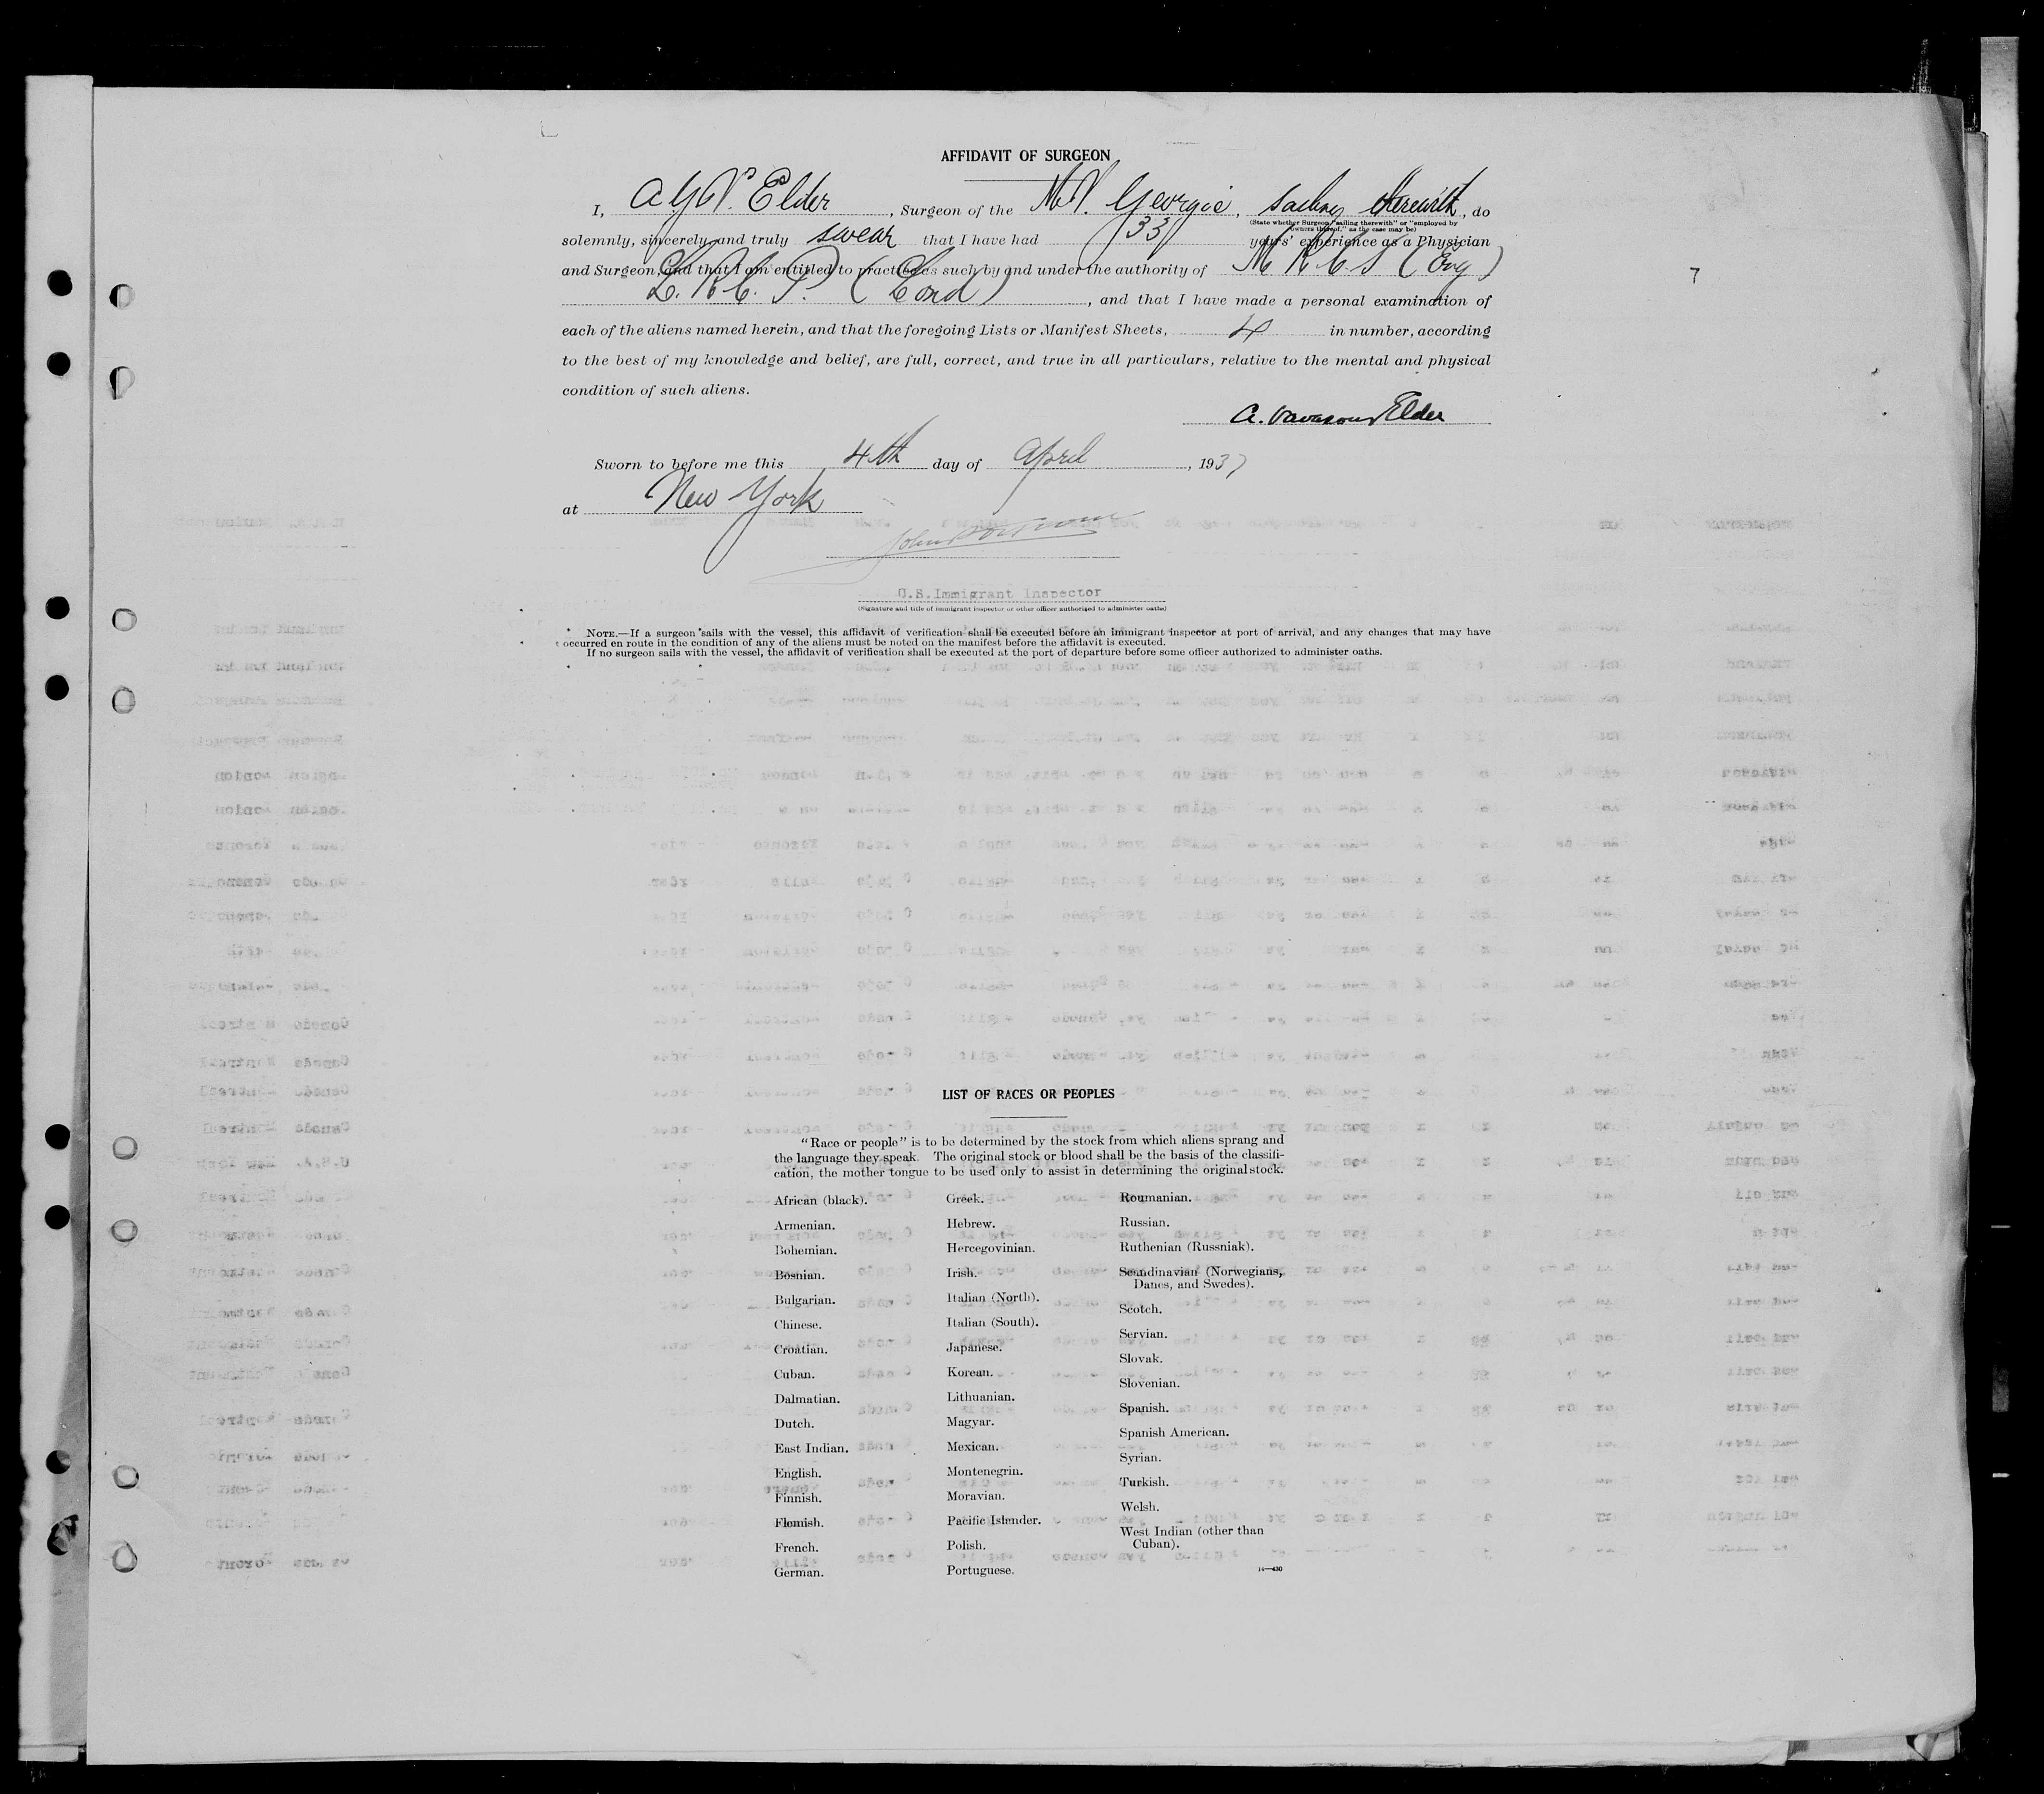 AFFIDAVIT OF SURGEON
I, A G V. Elder, Surgeon of the M.V. Georgic, sailing therewith, do
(State whether Surgeon "sailing therewith" or "employed by
owners thereof," as the case may be)
solemnly, sincerely, and truly swear that I have had 33 years' experience as a Physician
and Surgeon, and that I am entitled to practice as such by and under the authority of M R C S (Eng)
L. R C. P. (Lond), and that I have made a personal examination of
each of the aliens named herein, and that the foregoing Lists or Manifest Sheets, 4 in number, according
to the best of my knowledge and belief, are full, correct, and true in all particulars, relative to the mental and physical
condition of such aliens.
A. Vavasour Elder
Sworn to before me this 4th day of April, 1937
at New York
U.S. Immigrant Inspector
(Signature and title of immigrant inspector or other officer authorized to administer oaths)
NOTE.—If a surgeon sails with the vessel, this affidavit of verification shall be executed before an immigrant inspector at port of arrival, and any changes that may have
occurred en route in the condition of any of the aliens must be noted on the manifest before the affidavit is executed.
If no surgeon sails with the vessel, the affidavit of verification shall be executed at the port of departure before some officer authorized to administer oaths.
7
LIST OF RACES OR PEOPLES
"Race or people" is to be determined by the stock from which aliens sprang and
the language they speak. The original stock or blood shall be the basis of the classifi-
cation, the mother tongue to be used only to assist in determining the original stock.
African (black).
Armenian.
Bohemian.
Bosnian.
Bulgarian.
Chinese.
Croatian.
Cuban.
Dalmatian.
Dutch.
East Indian.
English.
Finnish.
Flemish.
French.
German.
Greek.
Hebrew.
Hercegovinian.
Irish.
Italian (North).
Italian (South).
Japanese.
Korean.
Lithuanian.
Magyar.
Mexican.
Montenegrin.
Moravian.
Pacific Islander.
Polish.
Portuguese.
Roumanian.
Russian.
Ruthenian (Russniak).
Scandinavian (Norwegians,
Danes, and Swedes).
Scotch.
Servian.
Slovak.
Slovenian.
Spanish.
Spanish American.
Syrian.
Turkish.
Welsh.
West Indian (other than
Cuban).
14—430